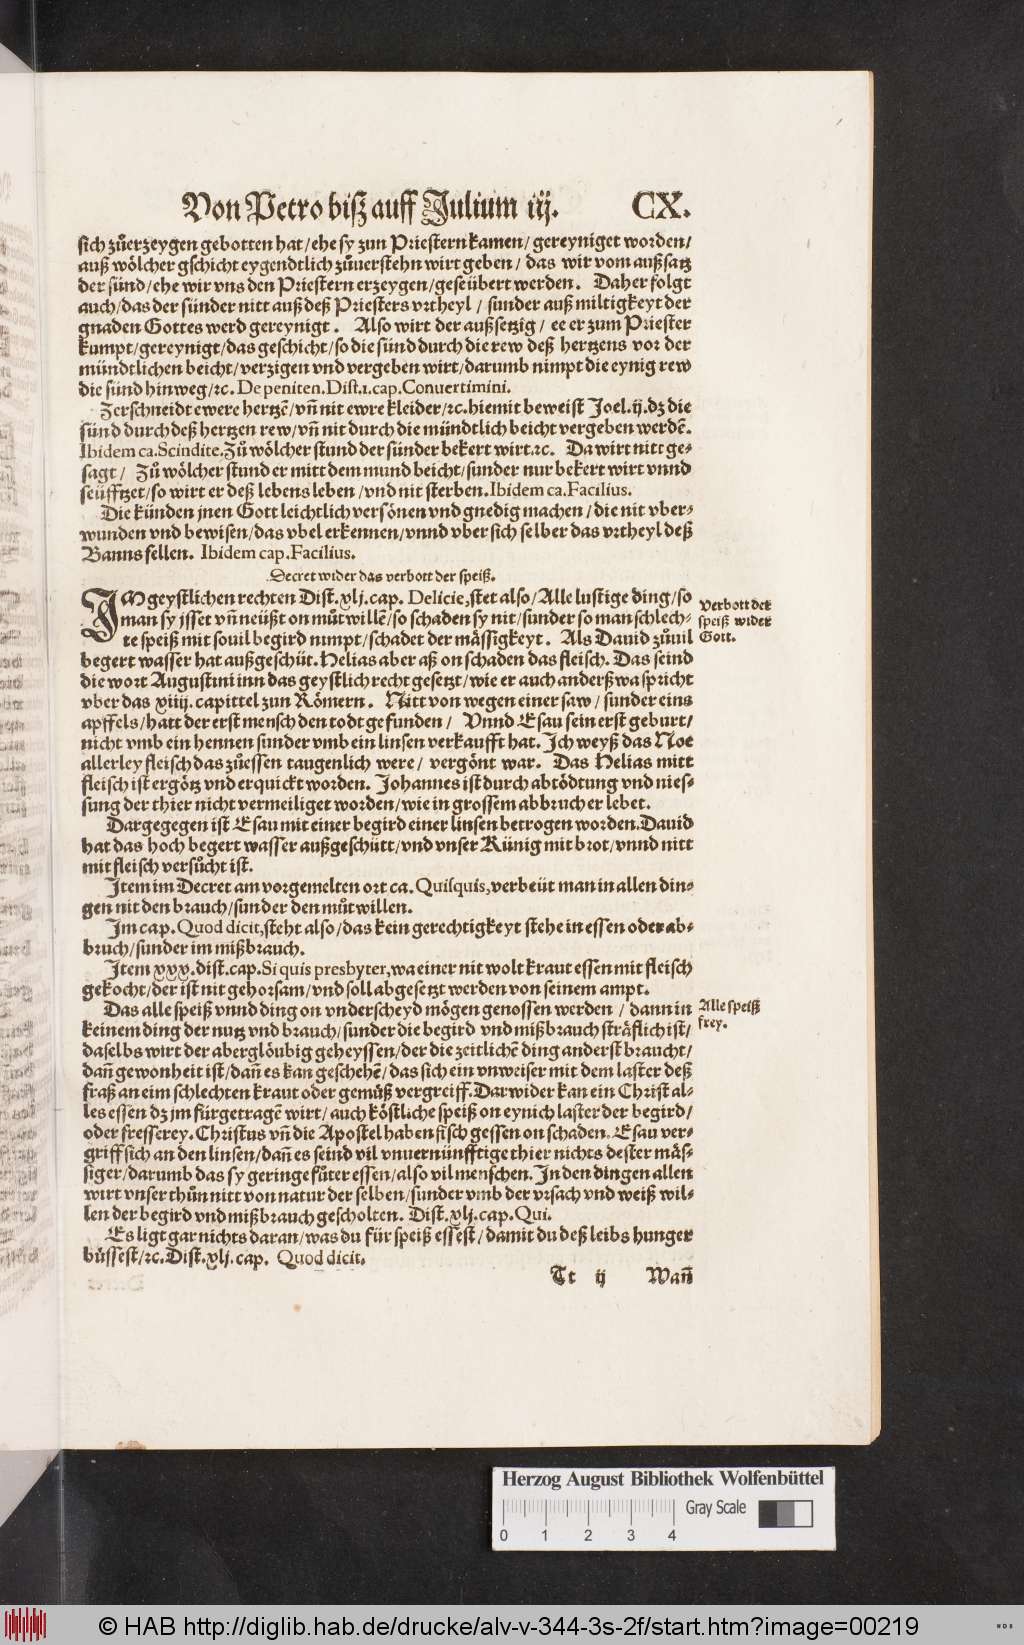 Von Petro biß auff Julium iij. CX.
sich zůerzeygen gebotten hat/ehe sy zun Priestern kamen/gereyniget worden/
auß wölcher gschicht eygendtlich zůuerstehn wirt geben/ das wir vom außsatz
der sünd/ehe wir vns den Priestern erzeygen/geseübert werden. Daher folgt
auch/das der sünder nitt auß deß Priesters vrtheyl / sunder auß miltigkeyt der
gnaden Gottes werd gereynigt. Also wirt der außsetzig / ee er zum Priester
kumpt/gereynigt/das geschicht/so die sünd durch die rew deß hertzens vor der
mündtlichen beicht/verzigen vnd vergeben wirt/darumb nimpt die eynig rew
die sünd hinweg/ꝛc. De peniten.Dist.1.cap.Conuertimini.
Zerschneidt ewere hertzē/vñ nit ewre kleider/ꝛc.hiemit beweist Joel.ij.dz die
sünd durch deß hertzen rew/vñ nit durch die mündtlich beicht vergeben werdē.
Ibidem ca.Scindite.Zů wölcher stund der sünder bekert wirt.ꝛc. Da wirt nitt ge-
sagt / Zů wölcher stund er mitt dem mund beicht/sunder nur bekert wirt vnnd
seüfftzet/so wirt er deß lebens leben /vnd nit sterben.Ibidem ca.Facilius.
Die künden jnen Gott leichtlich versönen vnd gnedig machen /die nit vber-
wunden vnd bewisen/das vbel erkennen/vnnd vber sich selber das vrtheyl deß
Banns fellen. Ibidem cap.Facilius.
Decret wider das verbott der speiß.
IM geystlichen rechten Dist.xlj.cap. Delicie,stet also/Alle lustige ding/so
man sy jsset vñ neüßt on můtwillē/so schaden sy nit/sunder so man schlech-
te speiß mit souil begird nimpt/schadet der mässigkeyt. Als Dauid zůuil
begert wasser hat außgeschüt.Helias aber aß on schaden das fleisch. Das seind
die wort Augustini inn das geystlich recht gesetzt/wie er auch anderßwa spricht
vber das xiiij.capittel zun Römern. Nitt von wegen einer saw / sunder eins
apffels/hatt der erst mensch den todt gefunden / Vnnd Esau sein erst geburt/
nicht vmb ein hennen sunder vmb ein linsen verkaufft hat. Ich weyß das Noe
allerley fleisch das zůessen taugenlich were / vergönt war. Das Helias mitt
fleisch ist ergötz vnd erquickt worden. Johannes ist durch abtödtung vnd nies-
sung der thier nicht vermeiliget worden/wie in grossem abbruch er lebet.
Dargegegen ist Esau mit einer begird einer linsen betrogen worden.Dauid
hat das hoch begert wasser außgeschütt/vnd vnser Künig mit brot/vnnd nitt
mit fleisch versůcht ist.
Item im Decret am vorgemelten ort ca. Quisquis,verbeüt man in allen din-
gen nit den brauch/sunder den můtwillen.
Im cap.Quod dicit,steht also/das kein gerechtigkeyt stehe in essen oder ab-
bruch/sunder im mißbrauch.
Item xxx.dist.cap.Si quis presbyter,wa einer nit wolt kraut essen mit fleisch
gekocht/der ist nit gehorsam/vnd soll abgesetzt werden von seinem ampt.
Das alle speiß vnnd ding on vnderscheyd mögen genossen werden / dann in
keinem ding der nutz vnd brauch/sunder die begird vnd mißbrauch sträflich ist/
daselbs wirt der aberglöubig geheyssen/der die zeitlichē ding anderst braucht/
dañ gewonheit ist/dañ es kan geschehē/das sich ein vnweiser mit dem laster deß
fraß an eim schlechten kraut oder gemüß vergreiff.Darwider kan ein Christ al-
les essen dz jm fürgetragē wirt/auch köstliche speiß on eynich laster der begird/
oder fresserey.Christus vñ die Apostel haben fisch gessen on schaden.Esau ver-
griff sich an den linsen/dañ es seind vil vnuernünfftige thier nichts dester mäs-
siger/darumb das sy geringe fůter essen/also vil menschen.In den dingen allen
wirt vnser thůn nitt von natur der selben/sunder vmb der vrsach vnd weiß wil-
len der begird vnd mißbrauch gescholten. Dist.xlj.cap.Qui.
Es ligt gar nichts daran/was du für speiß essest/damit du deß leibs hunger
büssest/ꝛc.Dist.xlj.cap. Quod dicit.
Tt ij Wañ
Verbott der
speiß wider
Gott.
Alle speiß
frey.
Herzog August Bibliothek Wolfenbüttel
0 1 2 3 4 Gray Scale
© HAB http://diglib.hab.de/drucke/alv-v-344-3s-2f/start.htm?image=00219